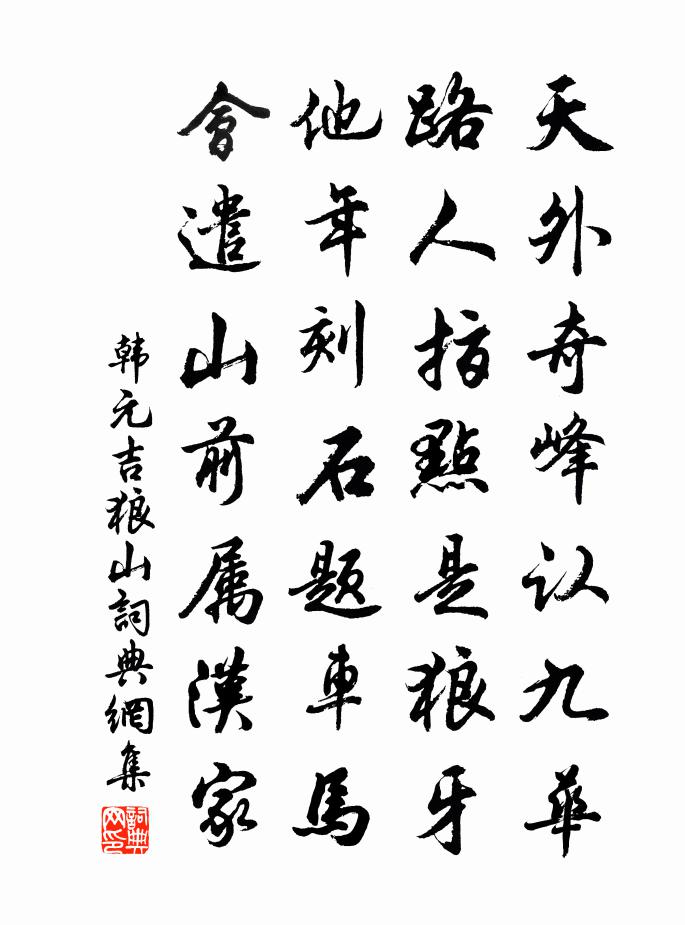 天外奇峰认九華
路人指點是狼牙
他年刻石题車馬
會遣山前属漢家
韩元吉狼山詞典網集
詞典网印